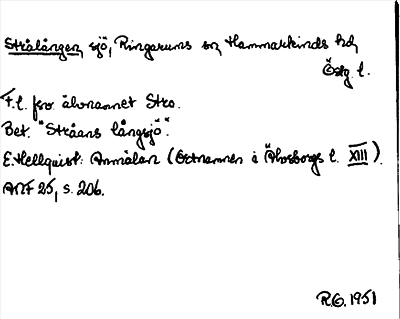 Strålången, sjö, Ringarums sn, Hammarkinds hd,
Östg. l.
F. l. fsv älvnamnet Stra.
Bet. "Stråans långsjö".
E. Hellquist: Anmälan (Ortnamnen i Älvsborgs l. XIII).
ANF 25, s. 206.
R.G. 1951